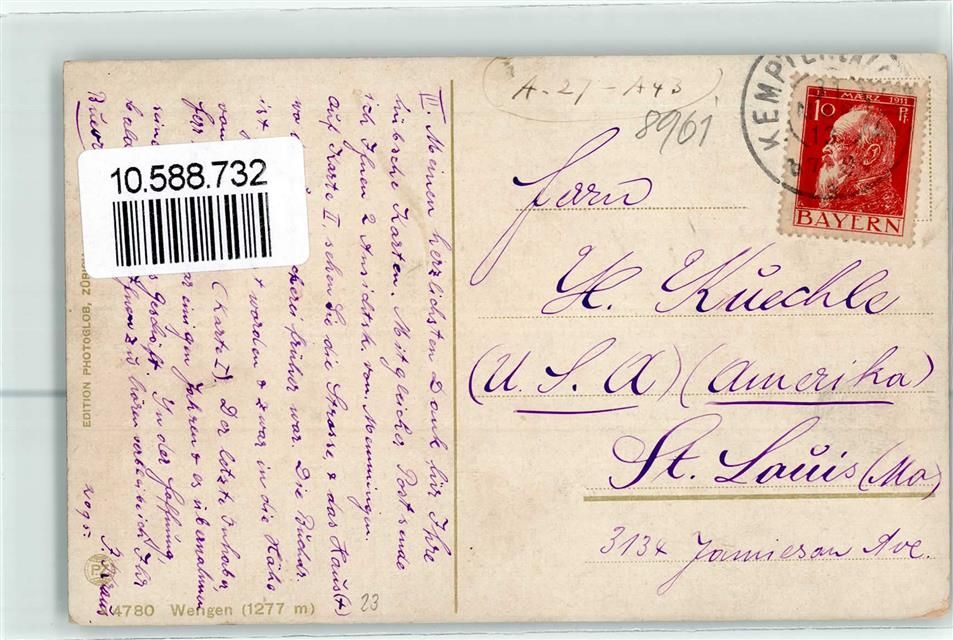 A-27-A43
8961
KEMPTEN
1886 MÄRZ 1911
10 Pf.
BAYERN
Herrn
H. Kuechle
(U. S. A) (Amerika)
St. Louis (Mo)
3134 Jamieson Ave.
10.588.732
III. Meinen herzlichsten Dank für Ihre
hübsche Karten. Mit gleicher Post sende
ich Ihnen 2 Ansichtsk. von Memmingen.
auf Karte II, sehen Sie die Strasse, & das Haus (+)
wo früher war. Die Buchdr.
ist worden & zwar in die Nähe
vom (Karte I). Der letzte Inhaber,
vor einigen Jahren & es übernahm
sein Geschäft. In der Hoffnung,
bald Ihnen zu hören verbleib ich Ihr
EDITION PHOTOGLOB, ZÜRICH
P
4780 Wengen (1277 m)
23